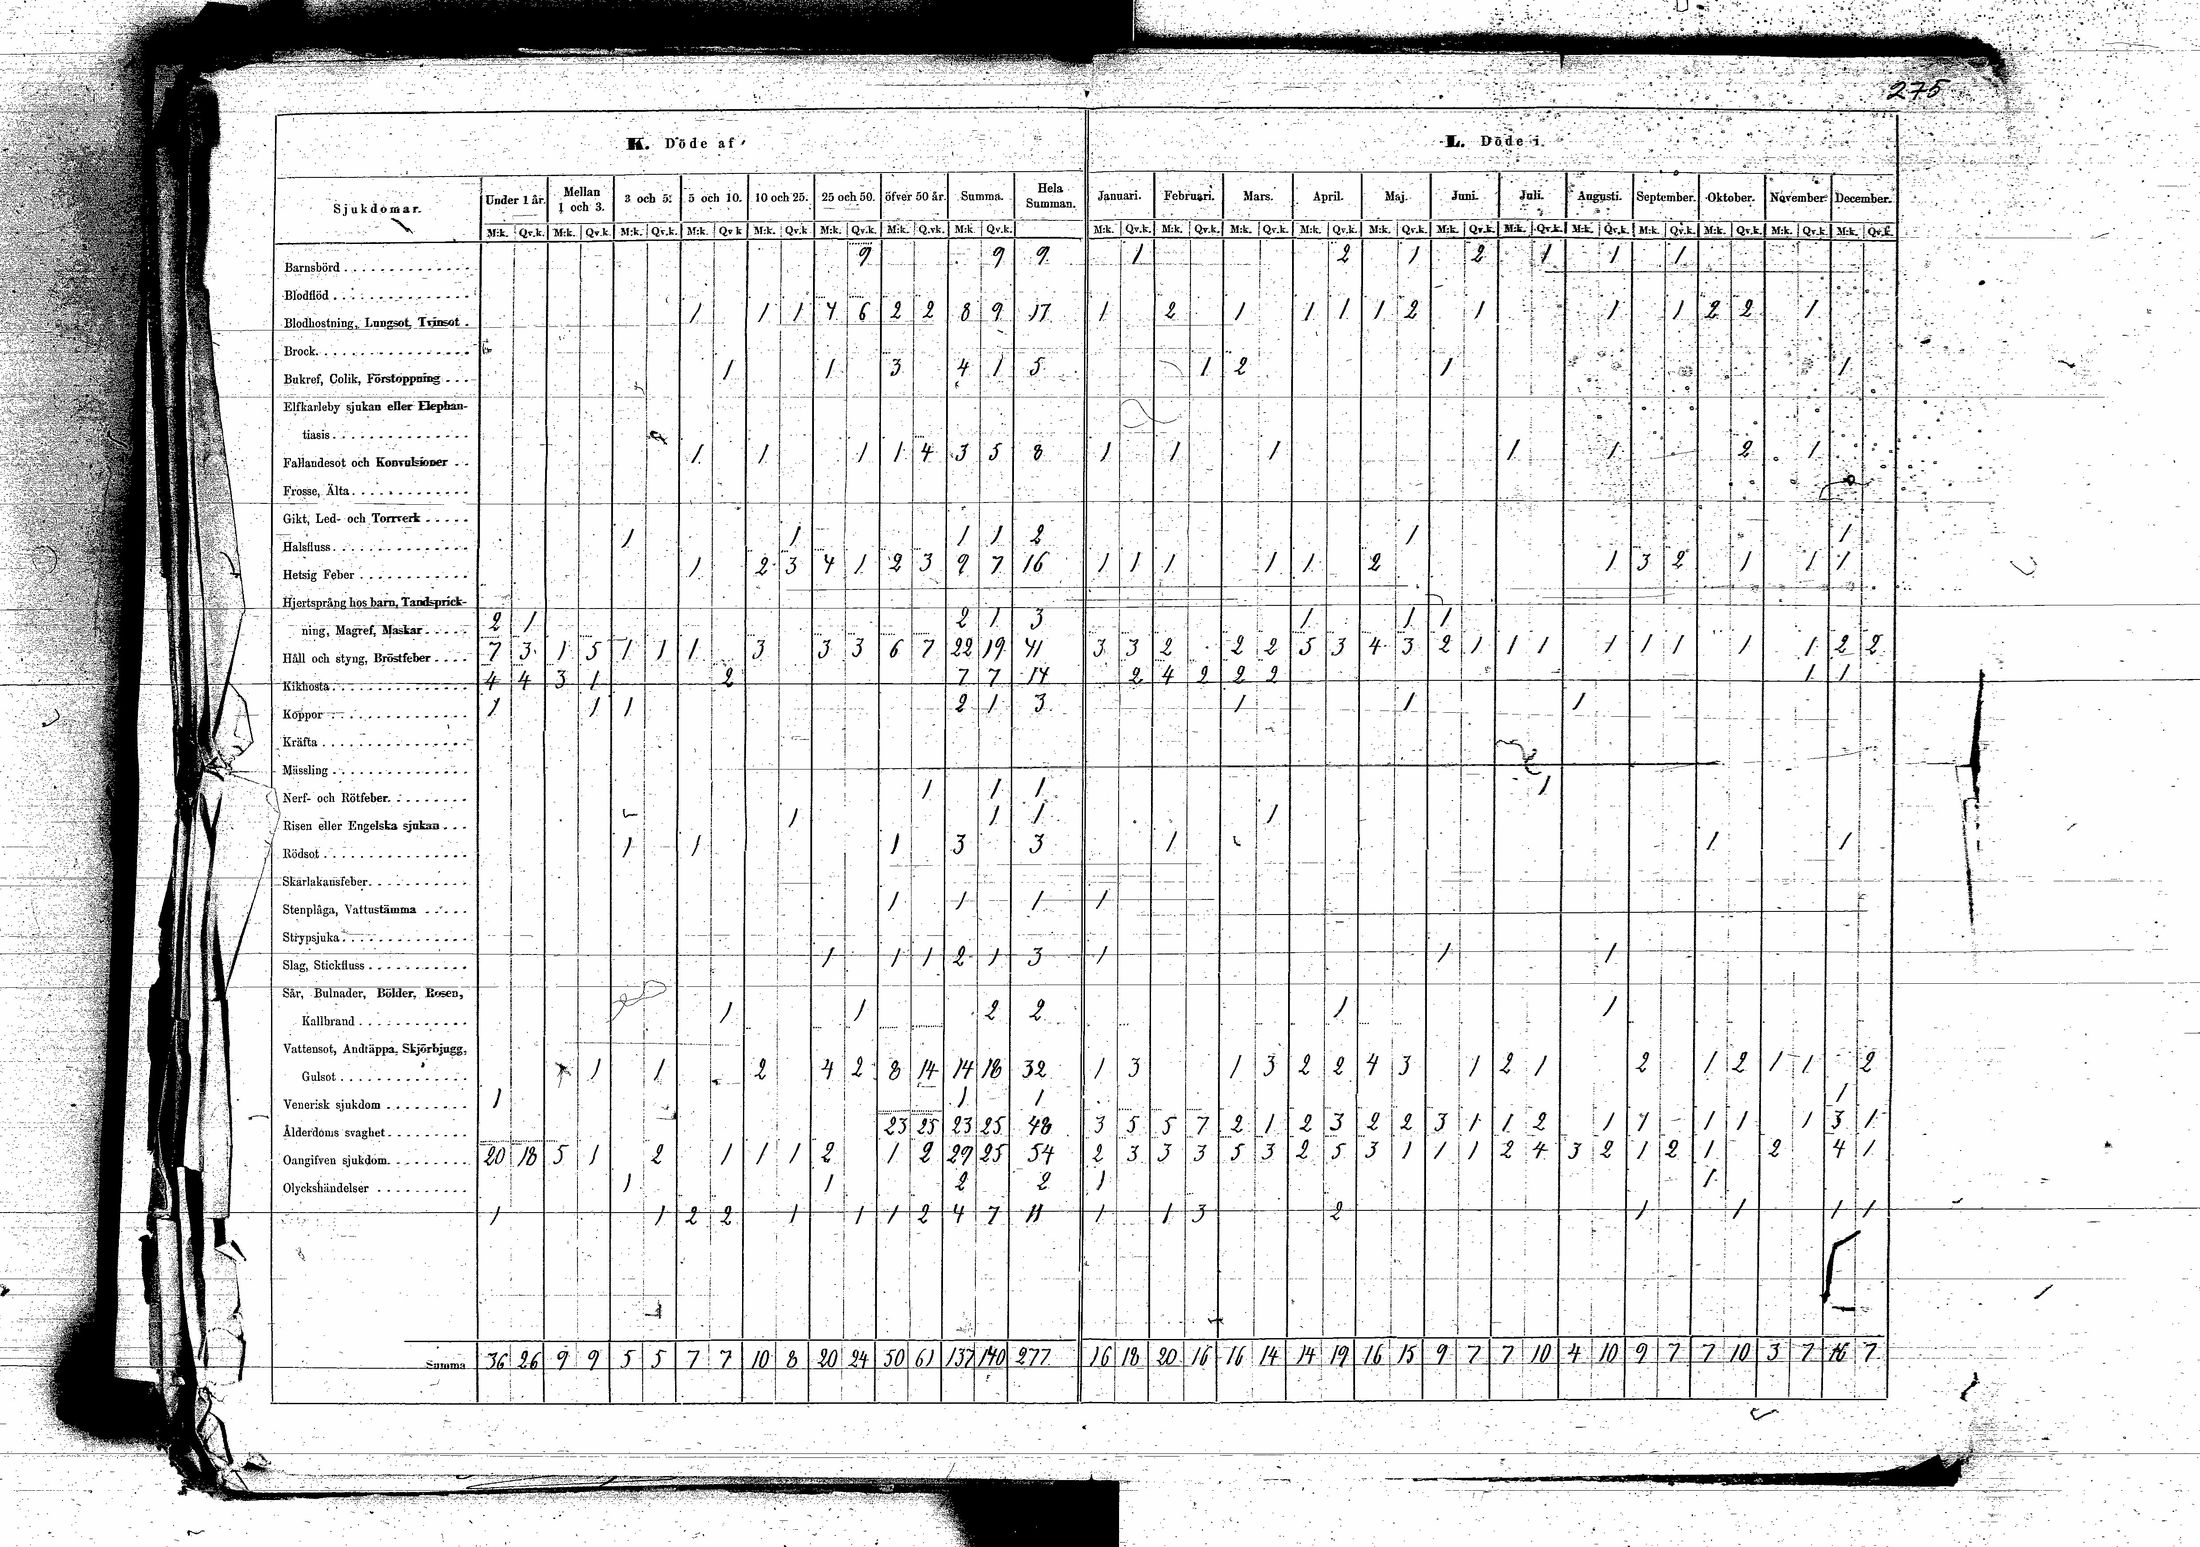 275
K. Döde af L. Döde i
Sjukdomar. Under 1 år. Mellan 1 och 3. 3 och 5. 5 och 10. 10 och 25. 25 och 50. öfver 50 år. Summa. Hela Summan. Januari. Februari. Mars. April. Maj. Juni. Juli. Augusti. September. Oktober. November. December.
M:k. Qv.k. M:k. Qv.k. M:k. Qv.k. M:k. Qv.k M:k. Qv.k M:k. Qv.k. M:k. Qv.k. M:k Qv.k. M:k. Qv.k. M:k. Qv.k. M:k. Qv.k. M:k. Qv.k. M:k. Qv.k. M:k. Qv.k. M:k. Qv.k. M:k. Qv.k. M:k. Qv.k. M:k. Qv.k. M:k. Qv.k. M:k. Qv.k.
Barnsbörd 9 9 9 1 2 1 2 1 1 1
Blodflöd
Blodhostning, Lungsot, Tvinsot 1 1 1 4 6 2 2 8 9 17 1 2 1 1 1 1 2 1 1 1 2 2 1
Brock
Bukref, Colik, Förstoppning 1 1 3 4 1 5 1 2 1 1
Elfkarleby sjukan eller Elephan-
tiasis
Fallandesot och Konvulsioner 1 1 1 1 4 3 5 8 1 1 1 1 1 2 1
Frosse, Älta
Gikt, Led- och Torrverk
Halsfluss 1 1 1 1 2 1 1
Hetsig Feber 1 2 3 4 1 2 3 9 7 16 1 1 1 1 1 2 1 3 2 1 1 1
Hjertsprång hos barn, Tandsprick-
ning, Magref, Maskar 2 1 2 1 3 1 1 1
Håll och styng, Bröstfeber 7 3 1 5 1 1 1 3 3 3 6 7 22 19 41 3 3 2 2 2 5 3 4 3 2 1 1 1 1 1 1 1 1 2 2
Kikhosta 4 4 3 1 2 7 7 14 2 4 2 2 2 1 1
Koppor 1 1 1 2 1 3 1 1 1
Kräfta
Mässling
Nerf- och Rötfeber 1 1 1 1
Risen eller Engelska sjukan 1 1 1 1
Rödsot 1 1 1 3 3 1 1 1
Skarlakansfeber
Stenplåga, Vattustämma 1 1 1 1
Strypsjuka
Slag, Stickfluss 1 1 1 2 1 3 1 1 1
Sår, Bulnader, Bölder, Rosen,
Kallbrand 1 1 2 2 1 1
Vattensot, Andtäppa, Skjörbjugg,
Gulsot 1 1 2 4 2 8 14 14 18 32 1 3 1 3 2 2 4 3 1 2 1 2 1 2 1 1 2
Venerisk sjukdom 1 1 1 1
Ålderdoms svaghet 23 25 23 25 48 3 5 5 7 2 1 2 3 2 2 3 1 1 2 1 1 1 1 1 3 1
Oangifven sjukdom 20 18 5 1 2 1 1 1 2 1 2 29 25 54 2 3 3 3 5 3 2 5 3 1 1 1 2 4 3 2 1 2 1 2 4 1
Olyckshändelser 1 1 2 2 1 1
1 1 2 2 1 1 1 2 4 7 11 1 1 3 2 1 1 1 1
Summa 36 26 9 9 5 5 7 7 10 8 20 24 50 61 137 140 277 16 18 20 16 16 14 14 19 16 15 9 7 7 10 4 10 9 7 7 10 3 7 16 7